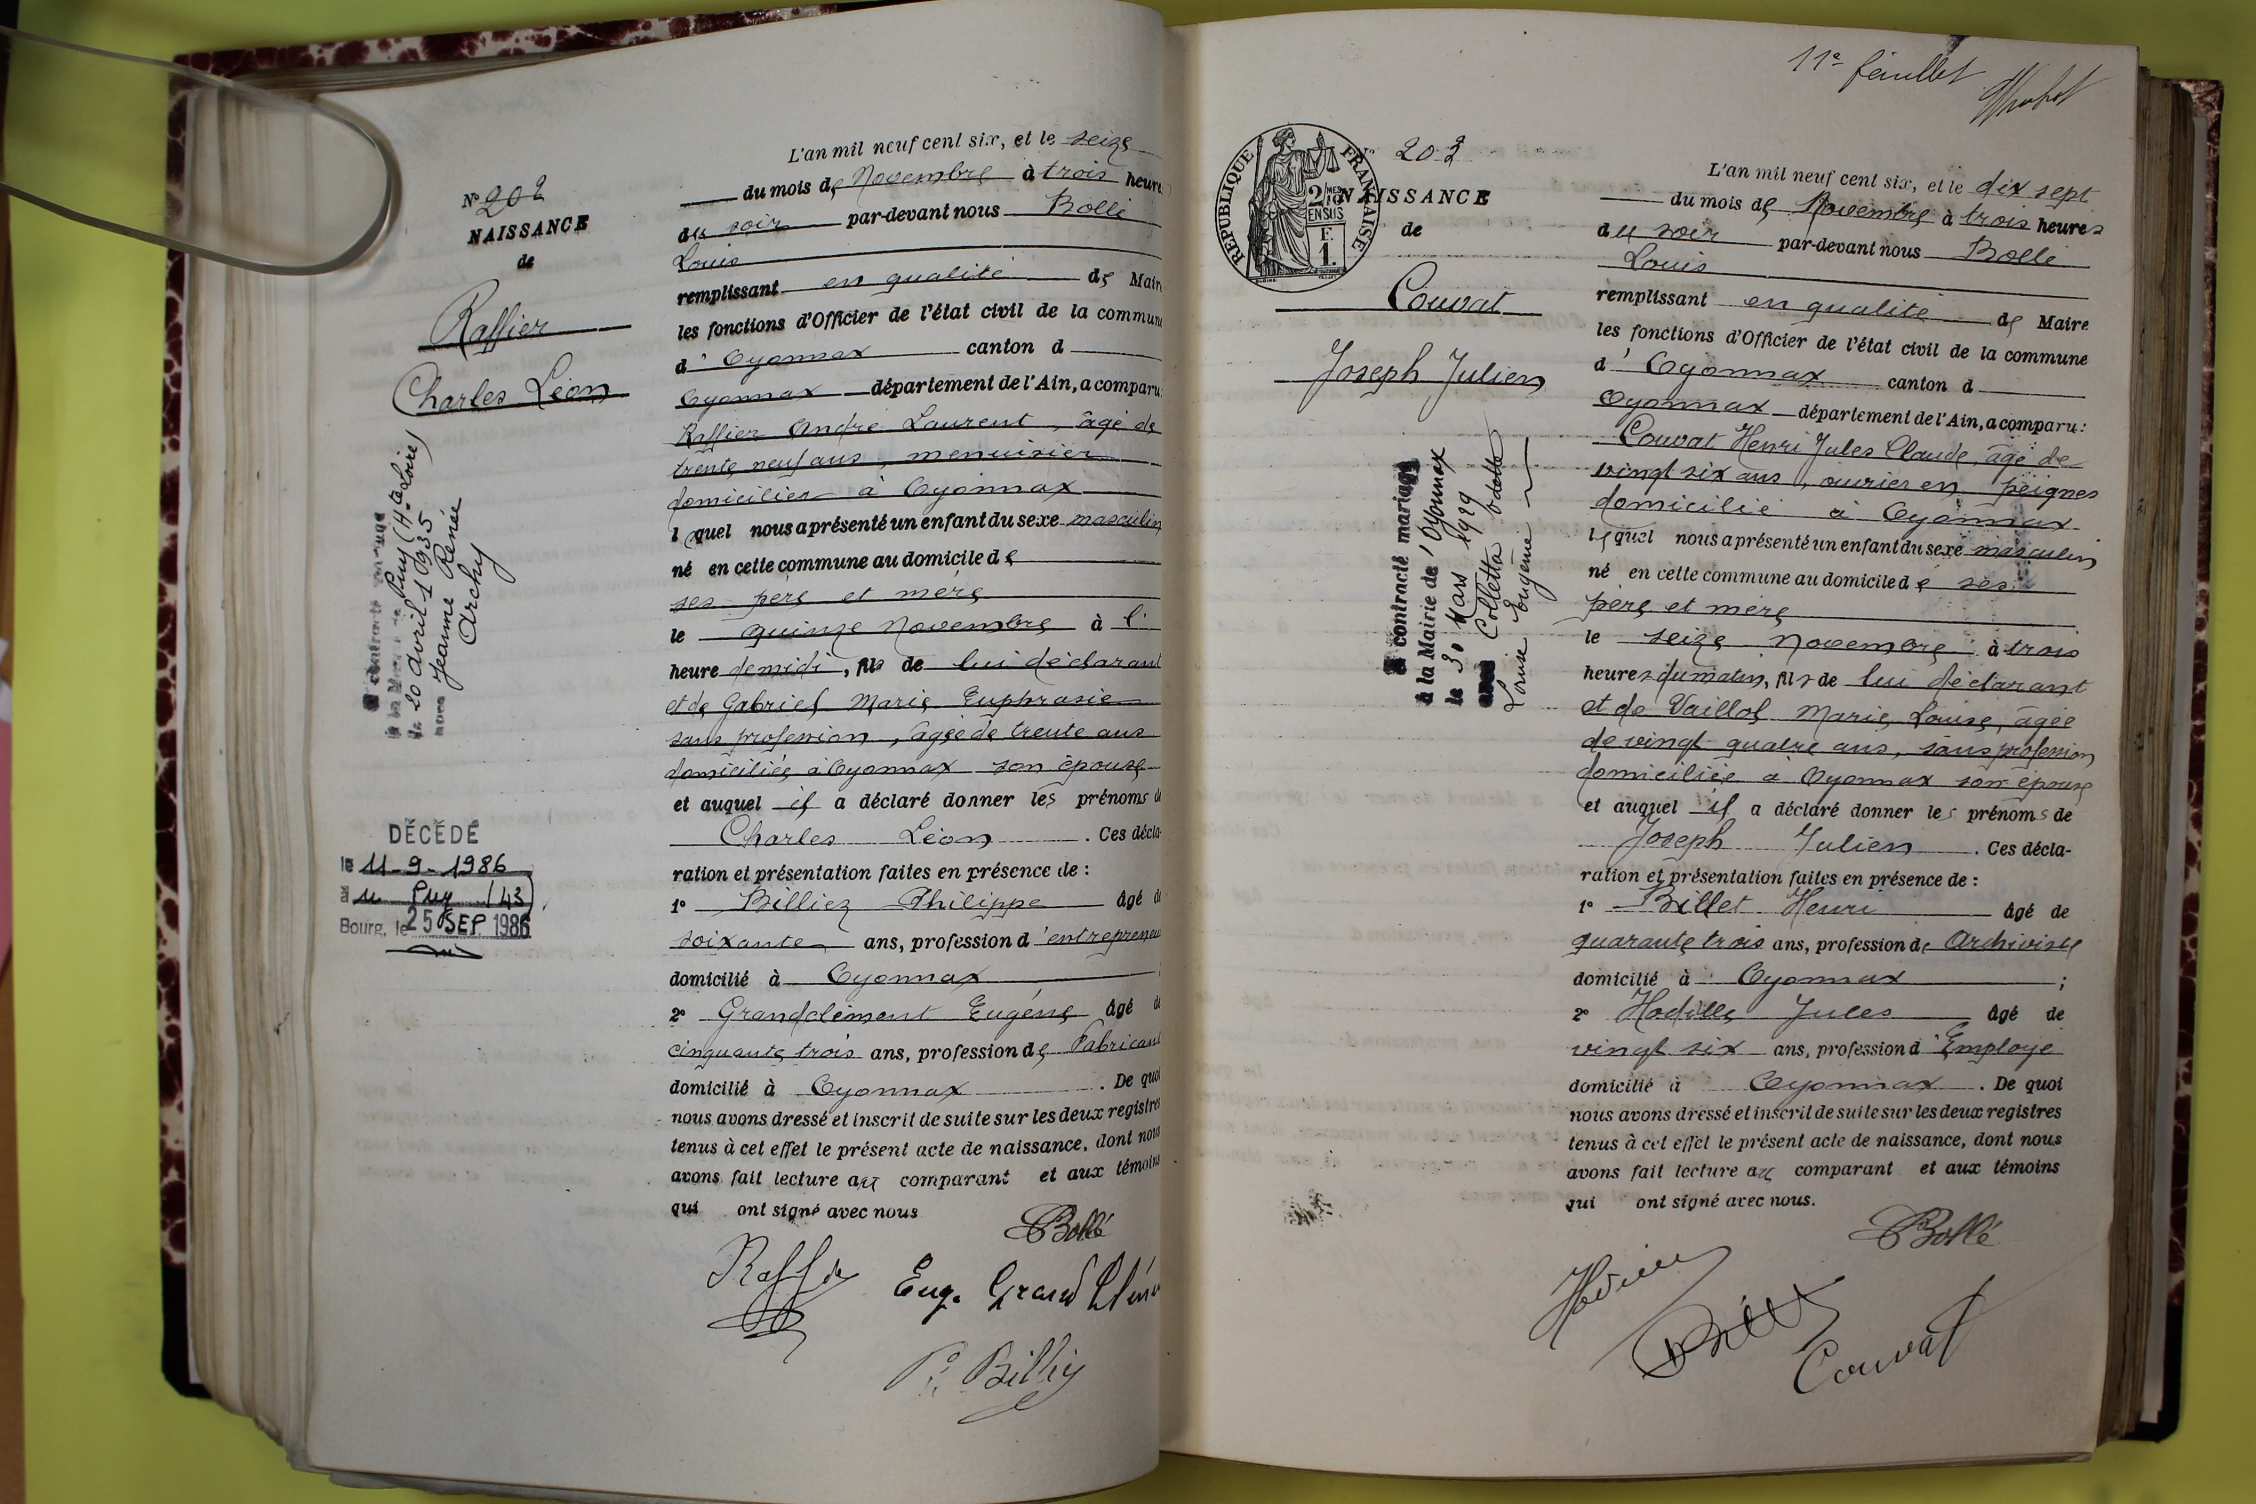 Nº 202
NAISSANCE
de
Raffier
Charles Léon
contracté mariage
à la Mairie de Puy (Hte Loire)
le 20 avril 1935
avec Jeanne Renée
Archy
DÉCÉDÉ
le 11-9-1986
à Puy (43)
Bourg, le 25 SEP. 1986
L'an mil neuf cent six, et le seize
du mois de Novembre à trois heures
du soir par-devant nous Bollé
Louis
remplissant en qualité de Maire
les fonctions d'Officier de l'état civil de la commune
d' Oyonnax canton d
Oyonnax département de l'Ain, a comparu:
Raffier André Laurent, âgé de
trente neuf ans, menuisier
domicilié à Oyonnax
lequel nous a présenté un enfant du sexe masculin
né en cette commune au domicile de
ses père et mère
le quinze Novembre à l'
heure de midi, fils de lui déclarant
et de Gabriel Marie Euphrasie
sans profession, âgée de trente ans
domiciliée à Oyonnax son épouse
et auquel il a déclaré donner les prénoms de
Charles Léon . Ces décla-
ration et présentation faites en présence de :
1º Billiez Philippe âgé de
soixante ans, profession d'entrepreneur
domicilié à Oyonnax ;
2º Grandclément Eugène âgé de
cinquante trois ans, profession de Fabricant
domicilié à Oyonnax . De quoi
nous avons dressé et inscrit de suite sur les deux registres
tenus à cet effet le présent acte de naissance, dont nous
avons fait lecture au comparant et aux témoins
qui ont signé avec nous
Bollé
Raffier Eug. Grandclément
P. Billiez
11e feuillet
RÉPUBLIQUE FRANÇAISE
2/10MES
EN SUS
F.
1.
Nº 203
NAISSANCE
de
Couvat
Joseph Julien
A contracté mariage
à la Mairie de d'Oyonnax
le 30 Mars 1929
avec Colletta Odette
Louise Eugénie
L'an mil neuf cent six, et le dix sept
du mois de Novembre à trois heures
du soir par-devant nous Bollé
Louis
remplissant en qualité de Maire
les fonctions d'Officier de l'état civil de la commune
d' Oyonnax canton d
Oyonnax département de l'Ain, a comparu:
Couvat Henri Jules Claude, âgé de
vingt six ans, ouvrier en peignes
domicilié à Oyonnax
lequel nous a présenté un enfant du sexe masculin
né en cette commune au domicile de ses
père et mère
le seize Novembre à trois
heures du matin, fils de lui déclarant
et de Vaillol Marie Louise, âgée
de vingt quatre ans, sans profession
domiciliée à Oyonnax son épouse
et auquel il a déclaré donner les prénoms de
Joseph Julien . Ces décla-
ration et présentation faites en présence de :
1º Billet Henri âgé de
quarante trois ans, profession de Archiviste
domicilié à Oyonnax ;
2º Hodille Jules âgé de
vingt six ans, profession d'Employé
domicilié à Oyonnax . De quoi
nous avons dressé et inscrit de suite sur les deux registres
tenus à cet effet le présent acte de naissance, dont nous
avons fait lecture au comparant et aux témoins
qui ont signé avec nous.
Bollé
Billet
Couvat